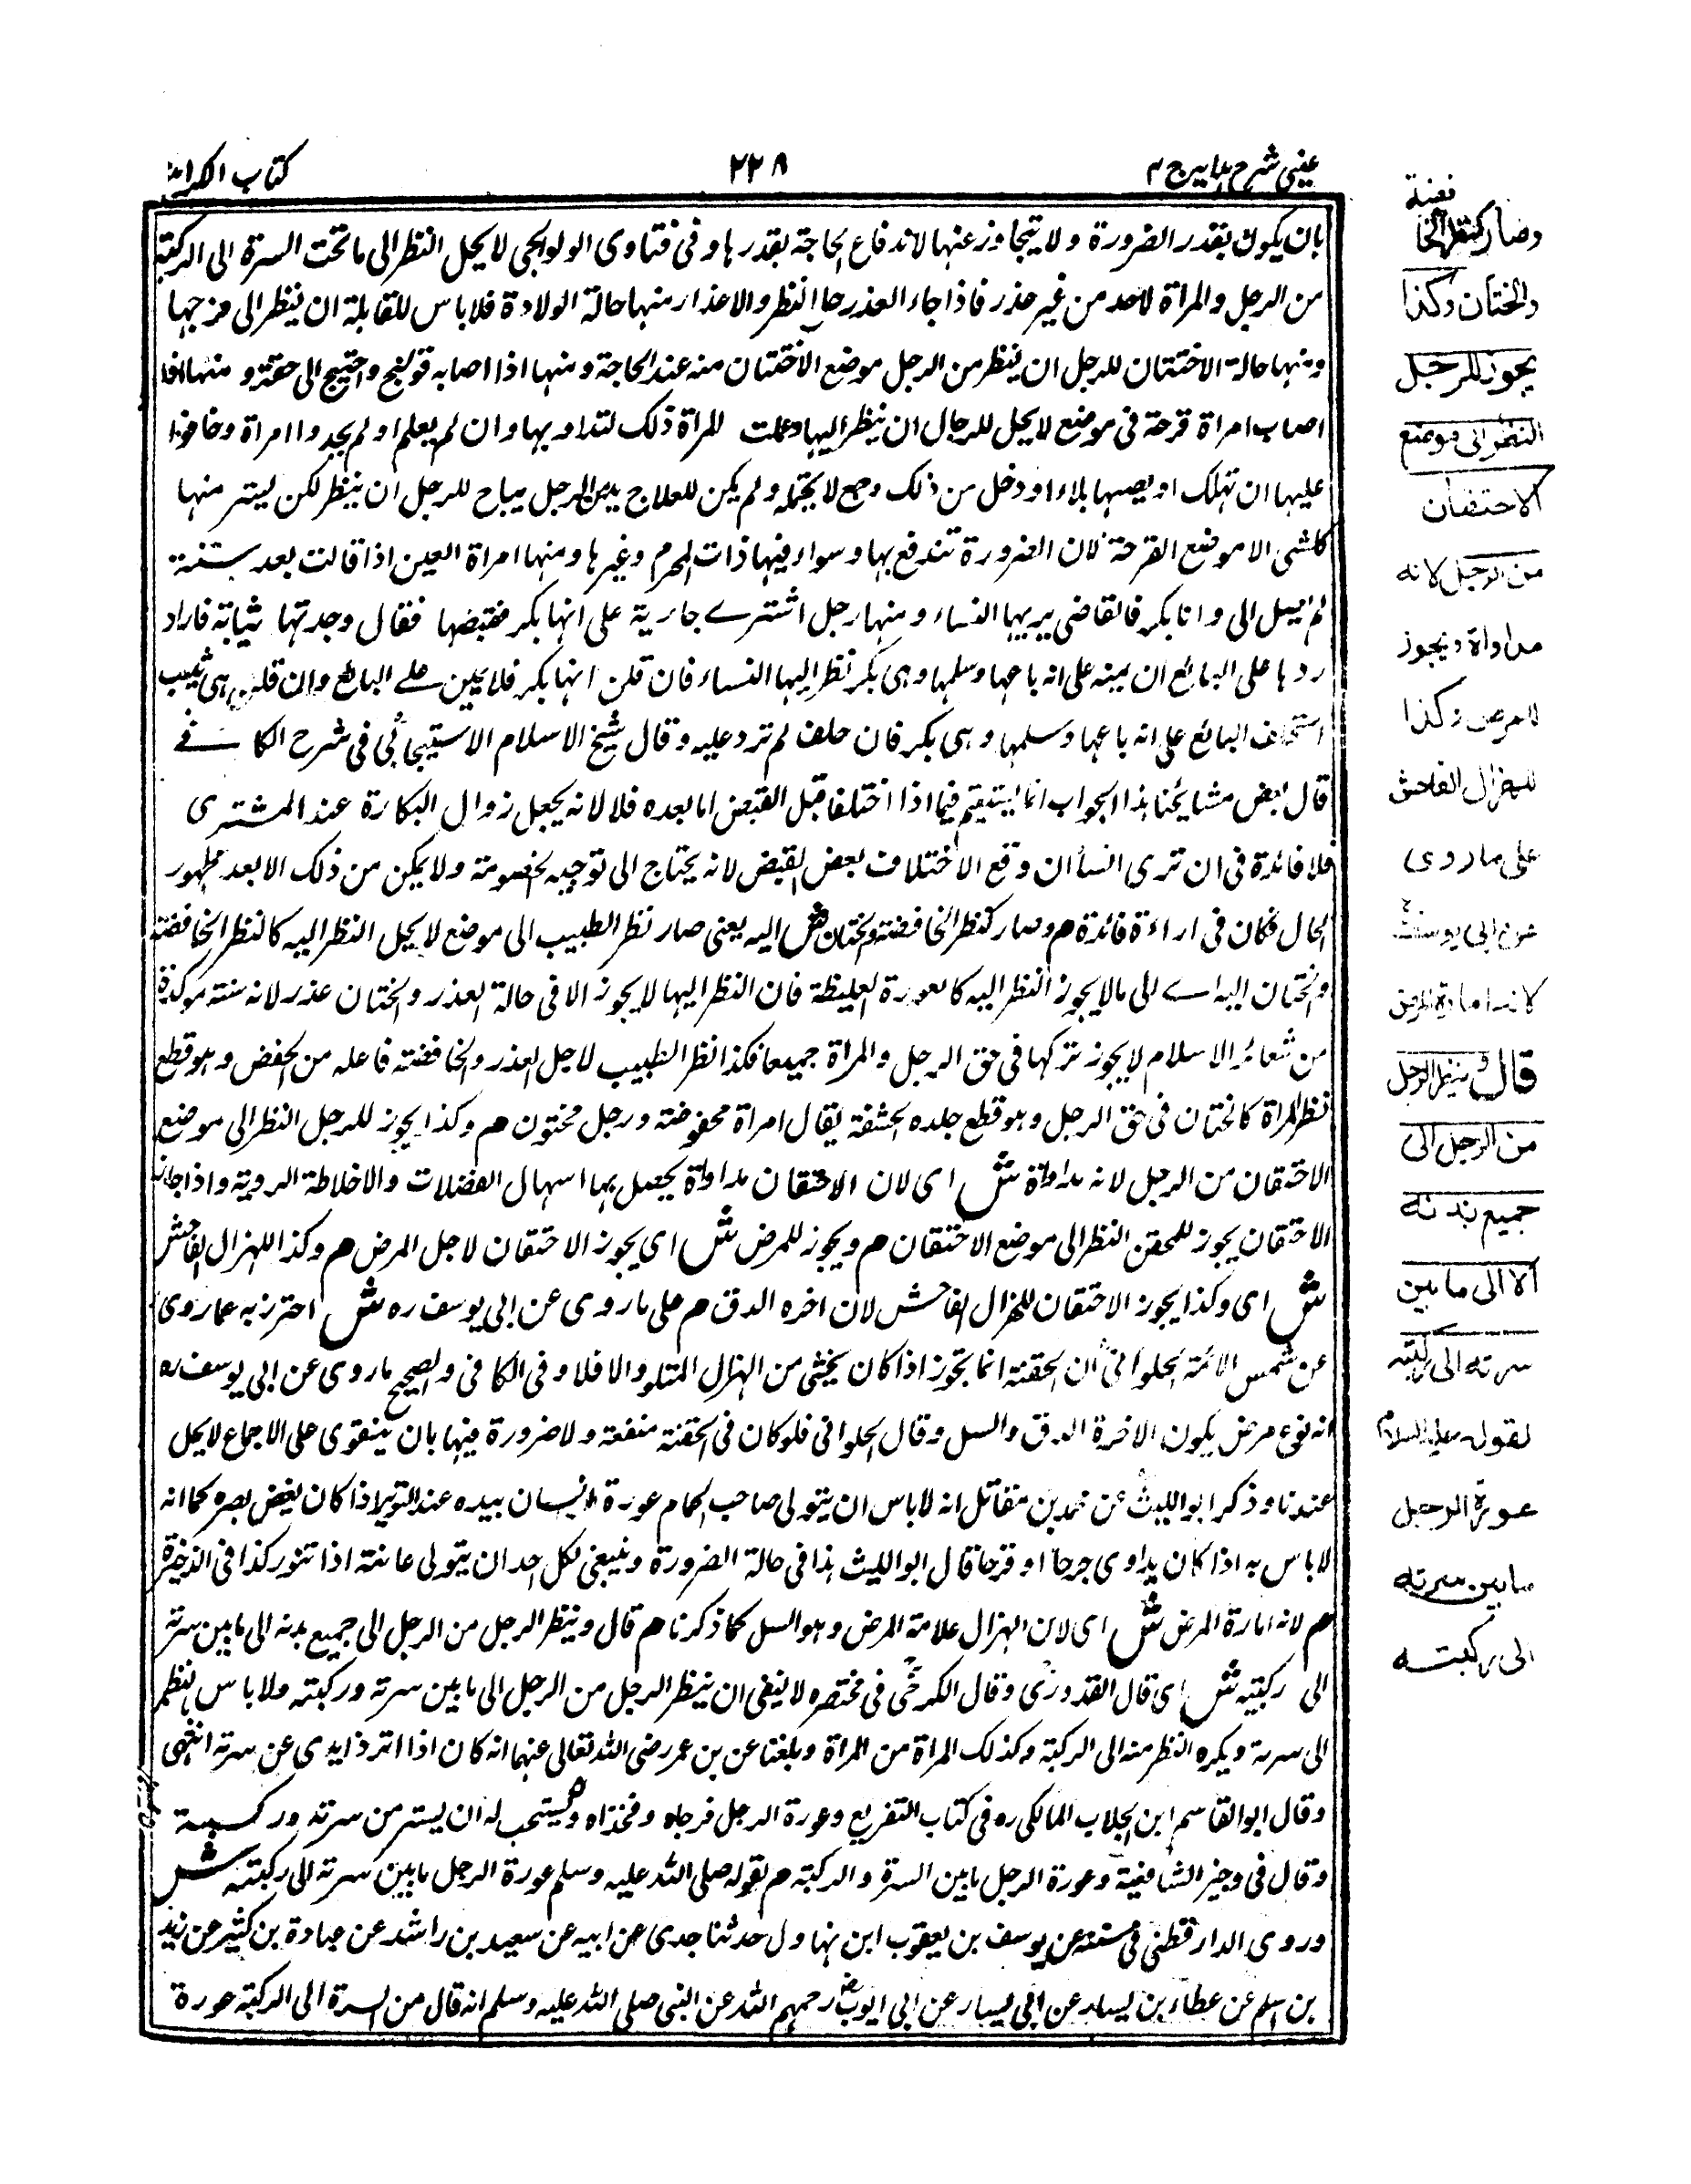 عینی شرح ہدایہ ج ۴
۲۲۸
كتاب الكراهية
بان يكون بقدر الضرورة ولا يتجاوز عنها لاندفاع الحاجة بقدرها وفى فتاوى الولوالجى لا يحل النظر الى ما تحت السرة الى الركبة
من الرجل والمراة لاحد من غير عذر فاذا جاء العذر حل النظر والاعذار منها حالة الولادة فلا باس للقابلة ان ينظر الى فرجها
ومنها حالة الاختتان للرجل ان ينظر من الرجل موضع الاختتان منه عند الحاجة ومنها اذا اصابه قولنج واحتيج الى حقنة ومنها اذا
اصاب امراة قرحة فى موضع لا يحل للرجال ان ينظر اليها وعلمت للمراة ذلك لتداويها وان لم يعلم او لم يجدوا امراة وخافوا
عليها ان تهلك او يصيبها بلاء او دخل من ذلك وجع لا يحتمله ولم يكن للعلاج بد من الرجل يباح للرجل ان ينظر لكن يستر منها
كل شى الا موضع القرحة لان الضرورة تندفع بها وسواء فيها ذات المحرم وغيرها ومنها امراة العين اذا قالت بعد سنة
لم يصل الى وانا بكر فالقاضى يريها النساء ومنها رجل اشترے جارية على انها بكر فقبضها فقال وجدتها ثيابة فاراد
ردها على البائع ان بينه على انه باعها وسلمها وهى بكر نظر اليها النساء فان قلن انها بكر فلا يمين علے البائع وان قلن هى ثيب
استحلف البائع على انه باعها وسلمها وهى بكر فان حلف لم ترد عليه وقال شيخ الاسلام الاسبيجابى فى شرح الكافے
قال بعض مشايخنا هذا الجواب انما يستقيم فيما اذا اختلفا قبل القبض اما بعده فلا لانه يجعل زوال البكارة عند المشترى
فلا فائدة فى ان ترى النسا ان وقع الاختلاف بعض القبض لانه يحتاج الى توجيه الخصومة ولا يمكن من ذلك الا بعد ظهور
الحال فكان فى اراءة فائدة م وصار كنظر الخافضة والختان ش اليه يعنى صار نظر الطبيب الى موضع لا يحل النظر اليه كالنظر الخافضة
والختان اليه اے الى ما لا يجوز النظر اليه كالعورة الغليظة فان النظر اليها لا يجوز الا فى حالة العذر والختان عذر لانه سنة موكدة
من شعائر الاسلام لا يجوز تركها فى حق الرجل والمراة جميعا فكذا نظر الطبيب لاجل العذر والخافضة فاعله من الخفض وهو قطع
نظر المراة كالختان فى حق الرجل وهو قطع جلده الحشفة يقال امراة مخفوضة ورجل مختون م وكذا يجوز للرجل النظر الى موضع
الاحتقان من الرجل لانه مداواة ش اى لان الاحتقان مداواة يحصل بها اسهال الفضلات والاخلاطة الردية واذا جاز
الاحتقان يجوز للمحقن النظر الى موضع الاحتقان م ويجوز للمرض ش اى يجوز الاحتقان لاجل المرض م وكذا للهزال الفاحش
ش اى وكذا يجوز الاحتقان للهزال الفاحش لان اخره الدق م على ما روى عن ابى يوسف ره ش احترز به عما روى
عن شمس الائمة الحلوانى ان الحقنة انما تجوز اذا كان يخشى من الهزال التلف والا فلا وفى الكافى والصحيح ما روى عن ابى يوسف ره
انه نوع مرض يكون الاخرة الدق والسل وقال الحلوانى فلو كان فى الحقنة منفعة ولا ضرورة فيها بان يتقوى على الجماع لا يحل
عندنا وذكر ابو الليث عن محمد بن مقاتل انه لا باس ان يتولى صاحب الحمام عورة انسان بيده عند التنوير اذا كان يغض بصره كما انه
لا باس به اذا كان يداوى جرحا او قرحا قال ابو الليث هذا فى حالة الضرورة وينبغى لكل احد ان يتولى عانته اذا تنور كذا فى الذخيرة
م لانه امارة المرض ش اى لان الهزال علامة المرض وهو السل كما ذكرنا م قال وينظر الرجل من الرجل الى جميع بدنه الى ما بين سرته
الى ركبتيه ش اى قال القدورى وقال الكرخى فى مختصره لا ينبغى ان ينظر الرجل من الرجل الى ما بين سرته وركبته ولا باس بنظر
الى سرته ويكره النظر منه الى الركبة وكذلك المراة من المراة وبلغنا عن بن عمر رضى الله تعالى عنهما انه كان اذا اتزر ذا يبدى عن سرته انتهى
وقال ابو القاسم ابن الجلاب المالكى ره فى كتاب التفريع وعورة الرجل فرجاه وفخذاه ويستحب له ان يستر من سرته وركبته
وقال فى وجيز الشافعية وعورة الرجل ما بين السرة والركبة م لقوله صلى الله عليه وسلم عورة الرجل ما بين سرته الى ركبته ش
وروى الدارقطنى فى سننه عن يوسف بن يعقوب ابن بهلول حدثنا جدى عن ابيه عن سعيد بن راشد عن عبادة بن كثير عن زيد
بن اسلم عن عطاء بن يسار عن ابى يسار عن ابى ايوب رحمهم الله عن النبى صلى الله عليه وسلم انه قال من السرة الى الركبة عورة
وصار كنظر الخا
فضة
والختان وكذا
يجوز للرجل
النظر الى موضع
الاحتقان
من الرجل لانه
مداواة ويجوز
للمرض وكذا
للهزال الفاحش
على ما روى
عن ابى يوسف
لانه امارة المرض
قال وينظر الرجل
من الرجل الى
جميع بدنه
الا الى ما بين
سرته الى ركبته
لقوله عليه السلام
عورة الرجل
ما بين سرته
الى ركبته